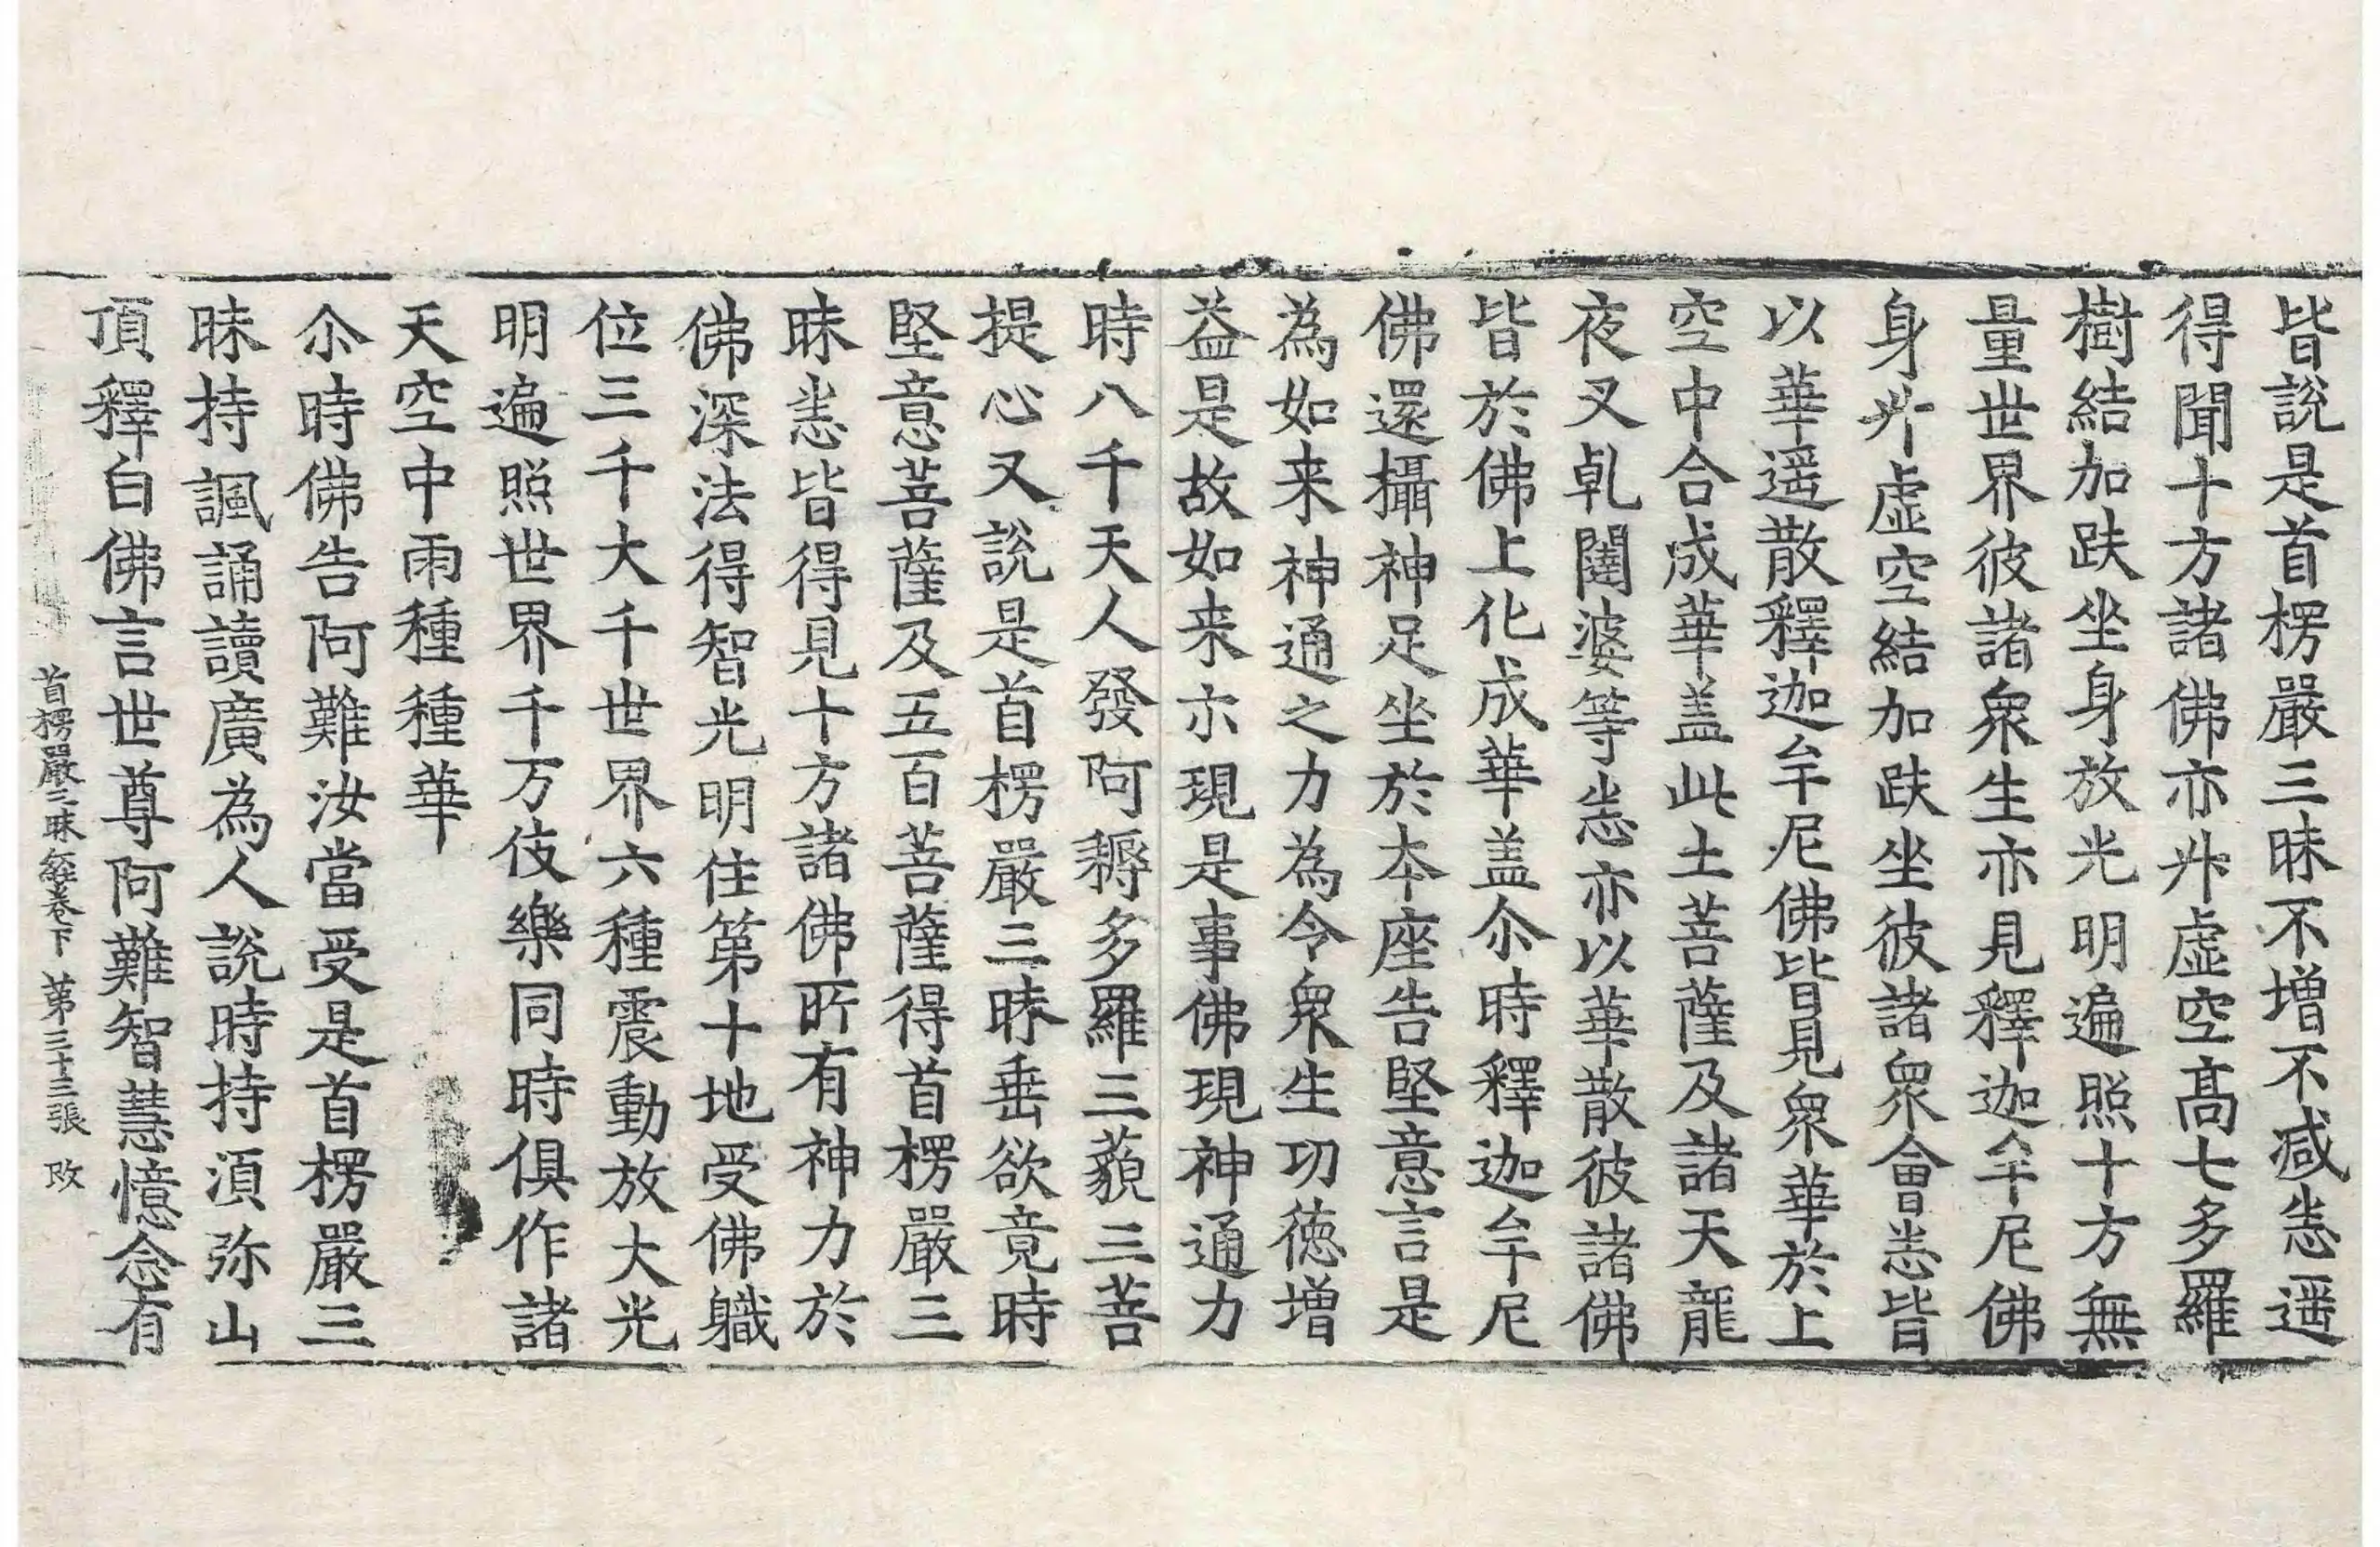 皆說是首楞嚴三昧不增不減悉遥
得聞十方諸佛亦升虛空高七多羅
樹結加趺坐身放光明遍照十方無
量世界彼諸衆生亦見釋迦牟尼佛
身升虛空結加趺坐彼諸衆會悉皆
以華遥散釋迦牟尼佛皆見衆華於上
空中合成華盖此土菩薩及諸天龍
夜叉乹闥婆等悉亦以華散彼諸佛
皆於佛上化成華盖尒時釋迦牟尼
佛還攝神足坐於本座告堅意言是
為如来神通之力為令衆生功德增
益是故如来亦現是事佛現神通力
時八千天人發阿耨多羅三藐三菩
提心又說是首楞嚴三昧垂欲竟時
堅意菩薩及五百菩薩得首楞嚴三
昧悉皆得見十方諸佛所有神力於
佛深法得智光明住第十地受佛軄
位三千大千世界六種震動放大光
明遍照世界千万伎樂同時俱作諸
天空中雨種種華
尒時佛告阿難汝當受是首楞嚴三
昧持諷誦讀廣為人說時持湏弥山
頂釋白佛言世尊阿難智慧憶念有
首楞嚴三昧經卷下 第三十三張 改